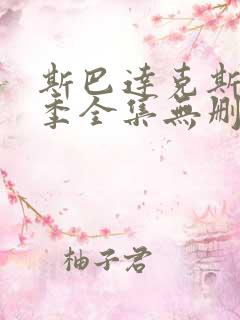 斯巴達克斯
季全集無刪
柚子君